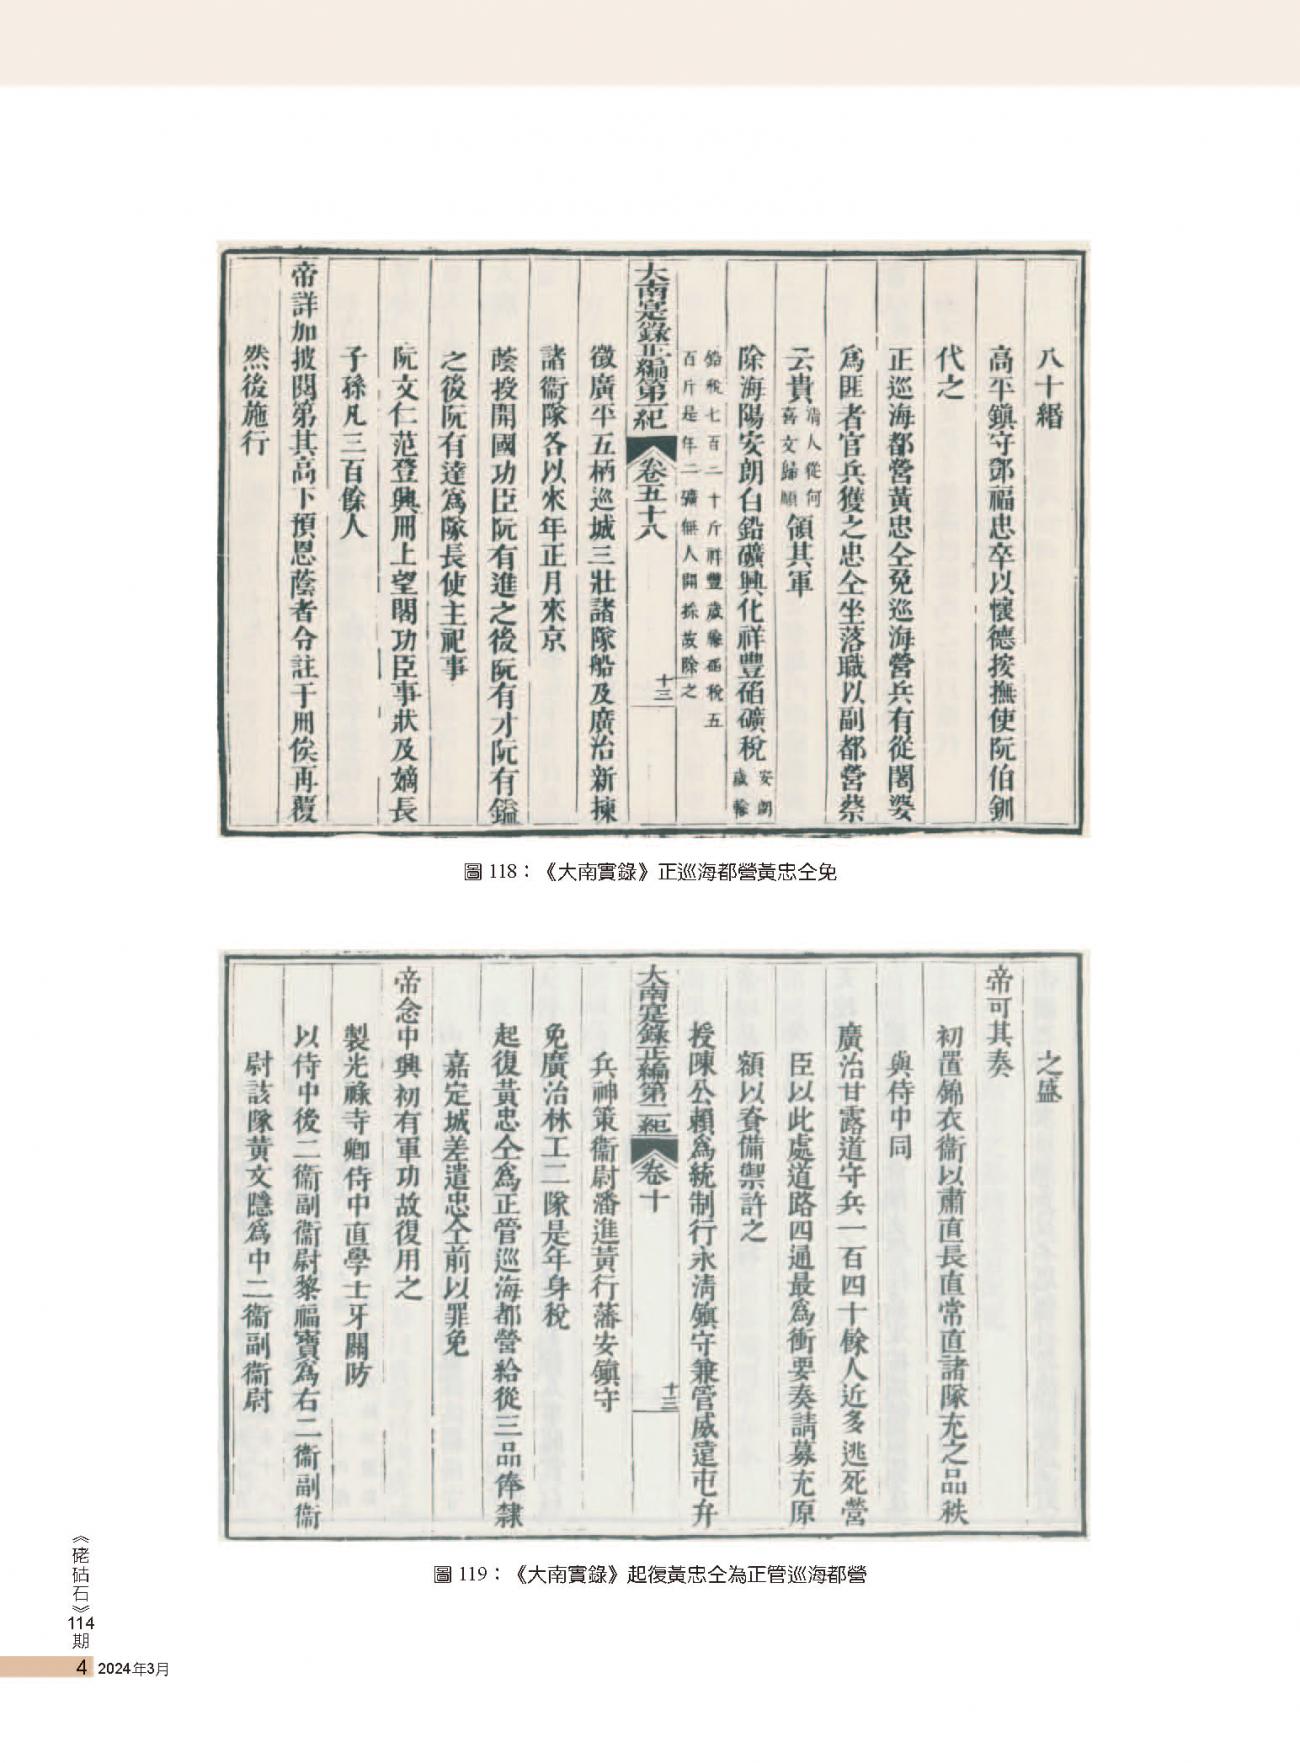 八十緡
高平鎮守鄧福忠卒以懷德按撫使阮伯釧
代之
正巡海都營黃忠仝免巡海營兵有從闍婆
爲匪者官兵獲之忠仝坐落職以副都營蔡
云貴清人從何喜文歸順領其軍
除海陽安朗白鉛礦興化祥豐硝礦稅安朗歲輸
鉛稅七百二十斤祥豐歲輸硝稅五
百斤是年二礦無人開採故除之
大南寔錄正編第一紀 卷五十八 十三
徵廣平五柄巡城三壯諸隊船及廣治新揀
諸衞隊各以來年正月來京
蔭授開國功臣阮有進之後阮有才阮有鎰
之後阮有達爲隊長使主祀事
阮文仁范登興冊上望閣功臣事狀及嫡長
子孫凡三百餘人
帝詳加披閱第其高下預恩蔭者令註于冊俟再覆
然後施行
圖 118：《大南實錄》正巡海都營黃忠仝免
之盛
帝可其奏
初置錦衣衞以肅直長直常直諸隊充之品秩
與侍中同
廣治甘露道守兵一百四十餘人近多逃死營
臣以此處道路四通最爲衝要奏請募充原
額以資備禦許之
授陳公賴爲統制行永清鎮守兼管威遠屯弁
兵神策衞尉潘進黃行藩安鎮守
大南寔錄正編第二紀 卷十 十三
免廣治林工二隊是年身稅
起復黃忠仝爲正管巡海都營給從三品俸隸
嘉定城差遣忠仝前以罪免
帝念中興初有軍功故復用之
製光祿寺卿侍中直學士牙關防
以侍中後二衞副衞尉黎福寶爲右二衞副衞
尉該隊黃文隱爲中二衞副衞尉
圖 119：《大南實錄》起復黃忠仝為正管巡海都營
《硓𥑮石》114期
4 2024年3月